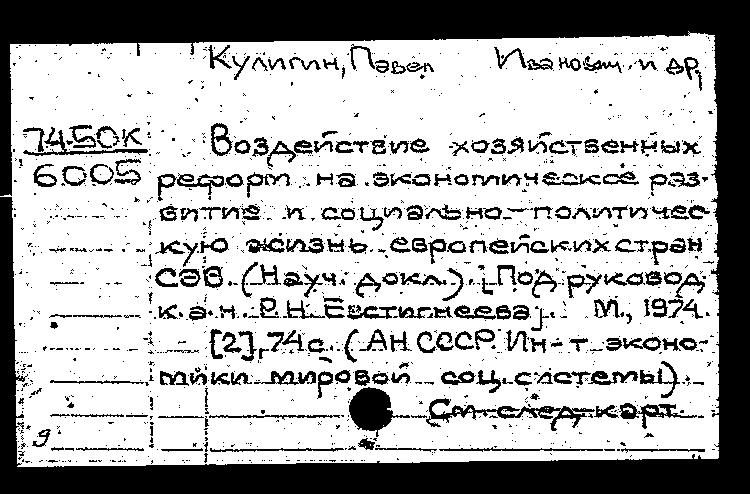 Кулигин, Павел Иванович и др.
74-50К
6005
Воздействие хозяйственных
реформ на экономическое раз-
витие и социально-политичес-
кую жизнь европейских стран
СЭВ. (Науч. докл.). [Под руковод.
к.э.н. Р.Н. Евстигнеева]. М., 1974.
[2], 74 с. (АН СССР. Ин-т эконо-
мики мировой соц. системы).
См. след. карт.
9